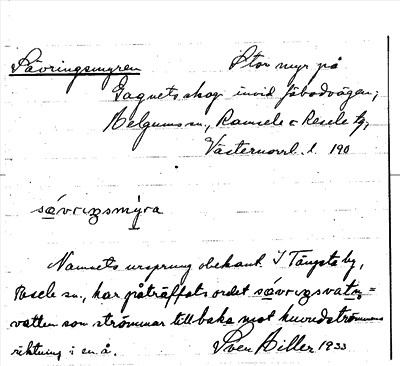 Sävringsmyren
Stor myr på
Gagnets skog invid fäbodvägen,
Helgums sn., Ramsele o Resele tg,
Västernorrl. l. 190
sævriŋsmýra
Namnets ursprung obekant. I Tängsta by,
Resele sn., har påträffats ordet sævriŋsvatn =
vatten som strömmar tillbaka mot huvudströmmens
riktning i en å. Sven Hiller 1933